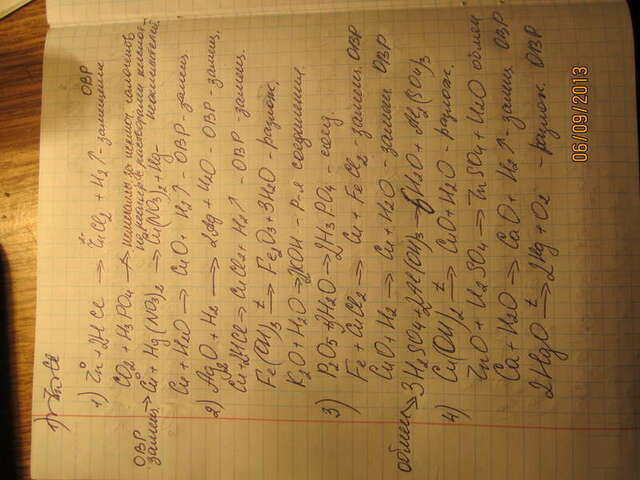 1) Zn + Cl
1) Zn⁰ + 2HCl → ZnCl₂ + H₂↑ - замещение ОВР
CO₂ + H₃PO₄ ↛ неметаллы, за искл. галогенов
не реагир. с растворами кислот-неокислителей.
ОВР замещ. → Cu⁰ + Hg(NO₃)₂ → Cu(NO₃)₂ + Hg
Cu + H₂O → CuO + H₂↑ - ОВР - замещ.
2) Ag₂O + H₂ → 2Ag + H₂O - ОВР - замещ.
Cu + 2HCl → CuCl₂ + H₂↑ - ОВР - замещ.
Fe(OH)₃ →t Fe₂O₃ + 3H₂O - разлож.
K₂O + H₂O → 2KOH - р-я соединения.
3) P₂O₅ + 3H₂O → 2H₃PO₄ - соед.
Fe + CuCl₂ → Cu + FeCl₂ - замещ. ОВР
CuO + H₂ → Cu + H₂O - замещ ОВР
обмен → 3H₂SO₄ + 2Al(OH)₃ → 6H₂O + Al₂(SO₄)₃
4) Cu(OH)₂ →t CuO + H₂O - разлож.
ZnO + H₂SO₄ → ZnSO₄ + H₂O обмен
Ca + H₂O → CaO + H₂↑ - замещ ОВР
2HgO →t 2Hg + O₂ - разлож. ОВР
06/09/2013